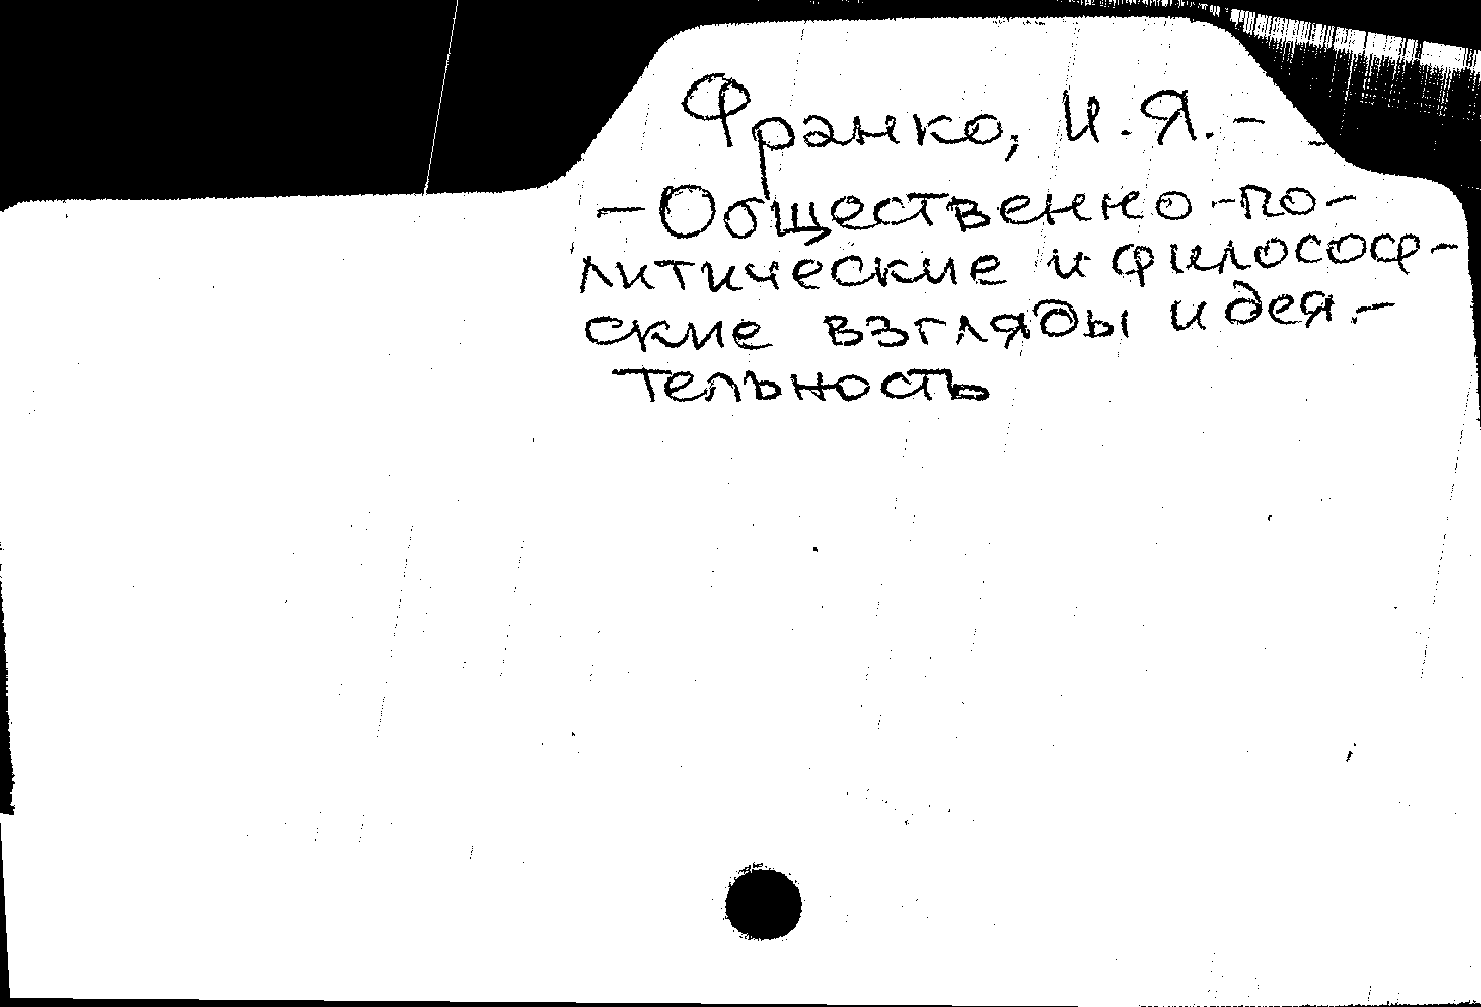 Франко, И.Я.-
-Общественно-по-
литические и философ-
ские взгляды и дея.-
тельность